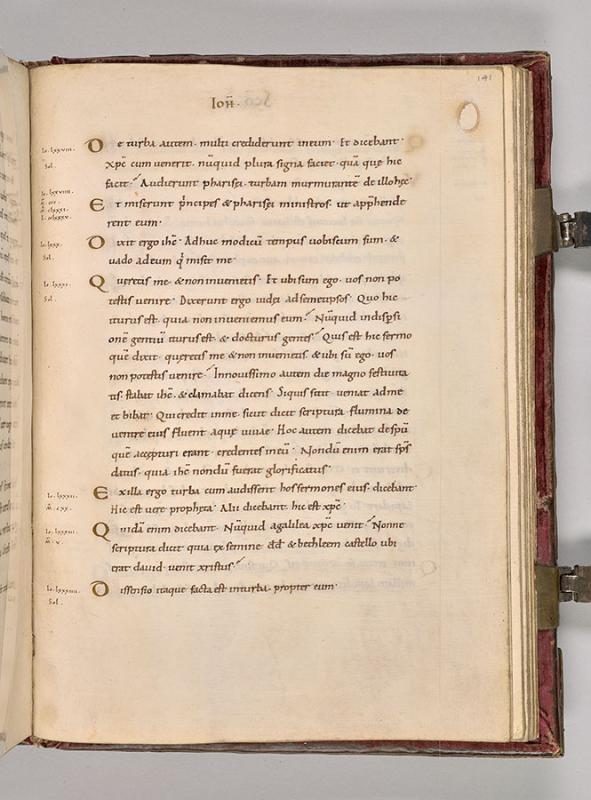 141
Ioh̅·
De turba autem· multi crediderunt ineum· Et dicebant·
xp̅c cum uenerit· nu̅quid plura signa faciet· qua̅ que hic
facit· Audierunt pharisei· turbam murmurante̅ de illo hec·
Et miserunt p̅ncipes & pharisei ministros· ut app̅hende
rent eum·
Dixit ergo ihc̅· Adhuc modicu̅ tempus uobiscum sum· &
uado adeum q̅ misit me·
Queretis me· & non inuenietis· Et ubi sum ego· uos non po
testis uenire· Dixerunt ergo iudei adsemetipsos· Quo hic
iturus est· quia non inueniemus eum· Nu̅quid indisp̅si
one̅ gentiu̅ iturus est· & docturus gentes· Quis est hic sermo
que̅ dixit· queretis me & non inuenietis· & ubi su̅ ego· uos
non potestis uenire· Innouissimo autem die magno festiuita
tis· stabat ihc̅· & clamabat dicens· Siquis sitit· ueniat adme
et bibat· Qui credit inme· sicut dicit scriptura· flumina de
uentre eius fluent aque uiuae· Hoc autem dicebat despu̅
que̅ accepturi erant· credentes ineu̅· Nondu̅ enim erat sp̅s
datus· quia ihc̅ nondu̅ fuerat glorificatus·
Ex illa ergo turba cum audissent hos sermones eius· dicebant·
Hic est uere propheta· Alii dicebant· hic est xp̅c·
Quida̅ enim dicebant· Nu̅quid agalilea xp̅c uenit· Nonne
scriptura dicit quia ex semine d̅d̅ & bethleem castello ubi
erat dauid· uenit xristus·
Dissensio itaque facta est inturba· propter eum·